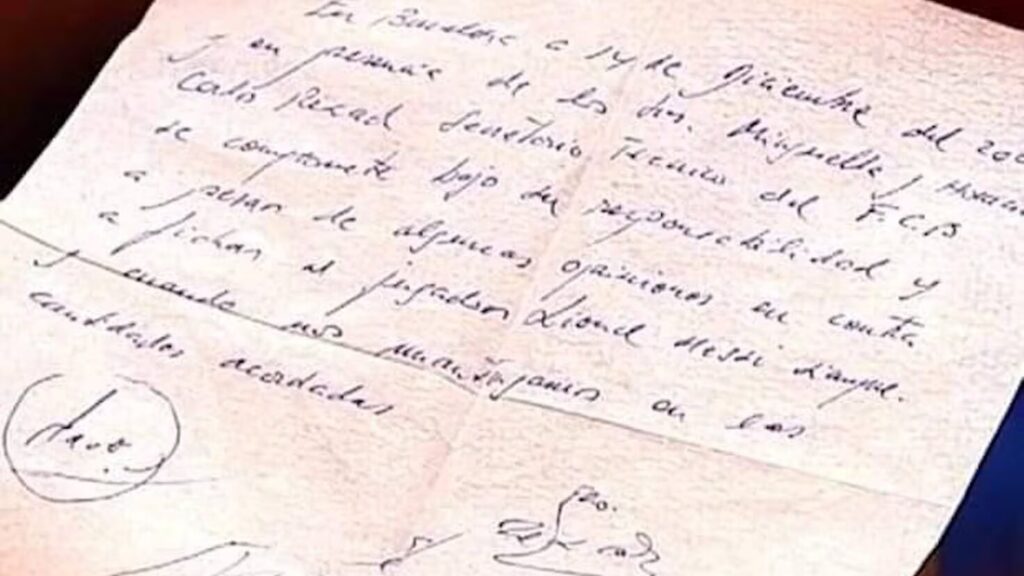 En Barcelona a 14 de Diciembre del 200
y en presencia de los Srs. Minguella y Horacio
Carlos Rexach Secretario Tecnico del F.C.B
se compromete bajo su responsabilidad y
a pesar de algunas opiniones en contra
a fichar al jugador Lionel Messi
y cuando nos mantengamos en las
cantidades acordadas